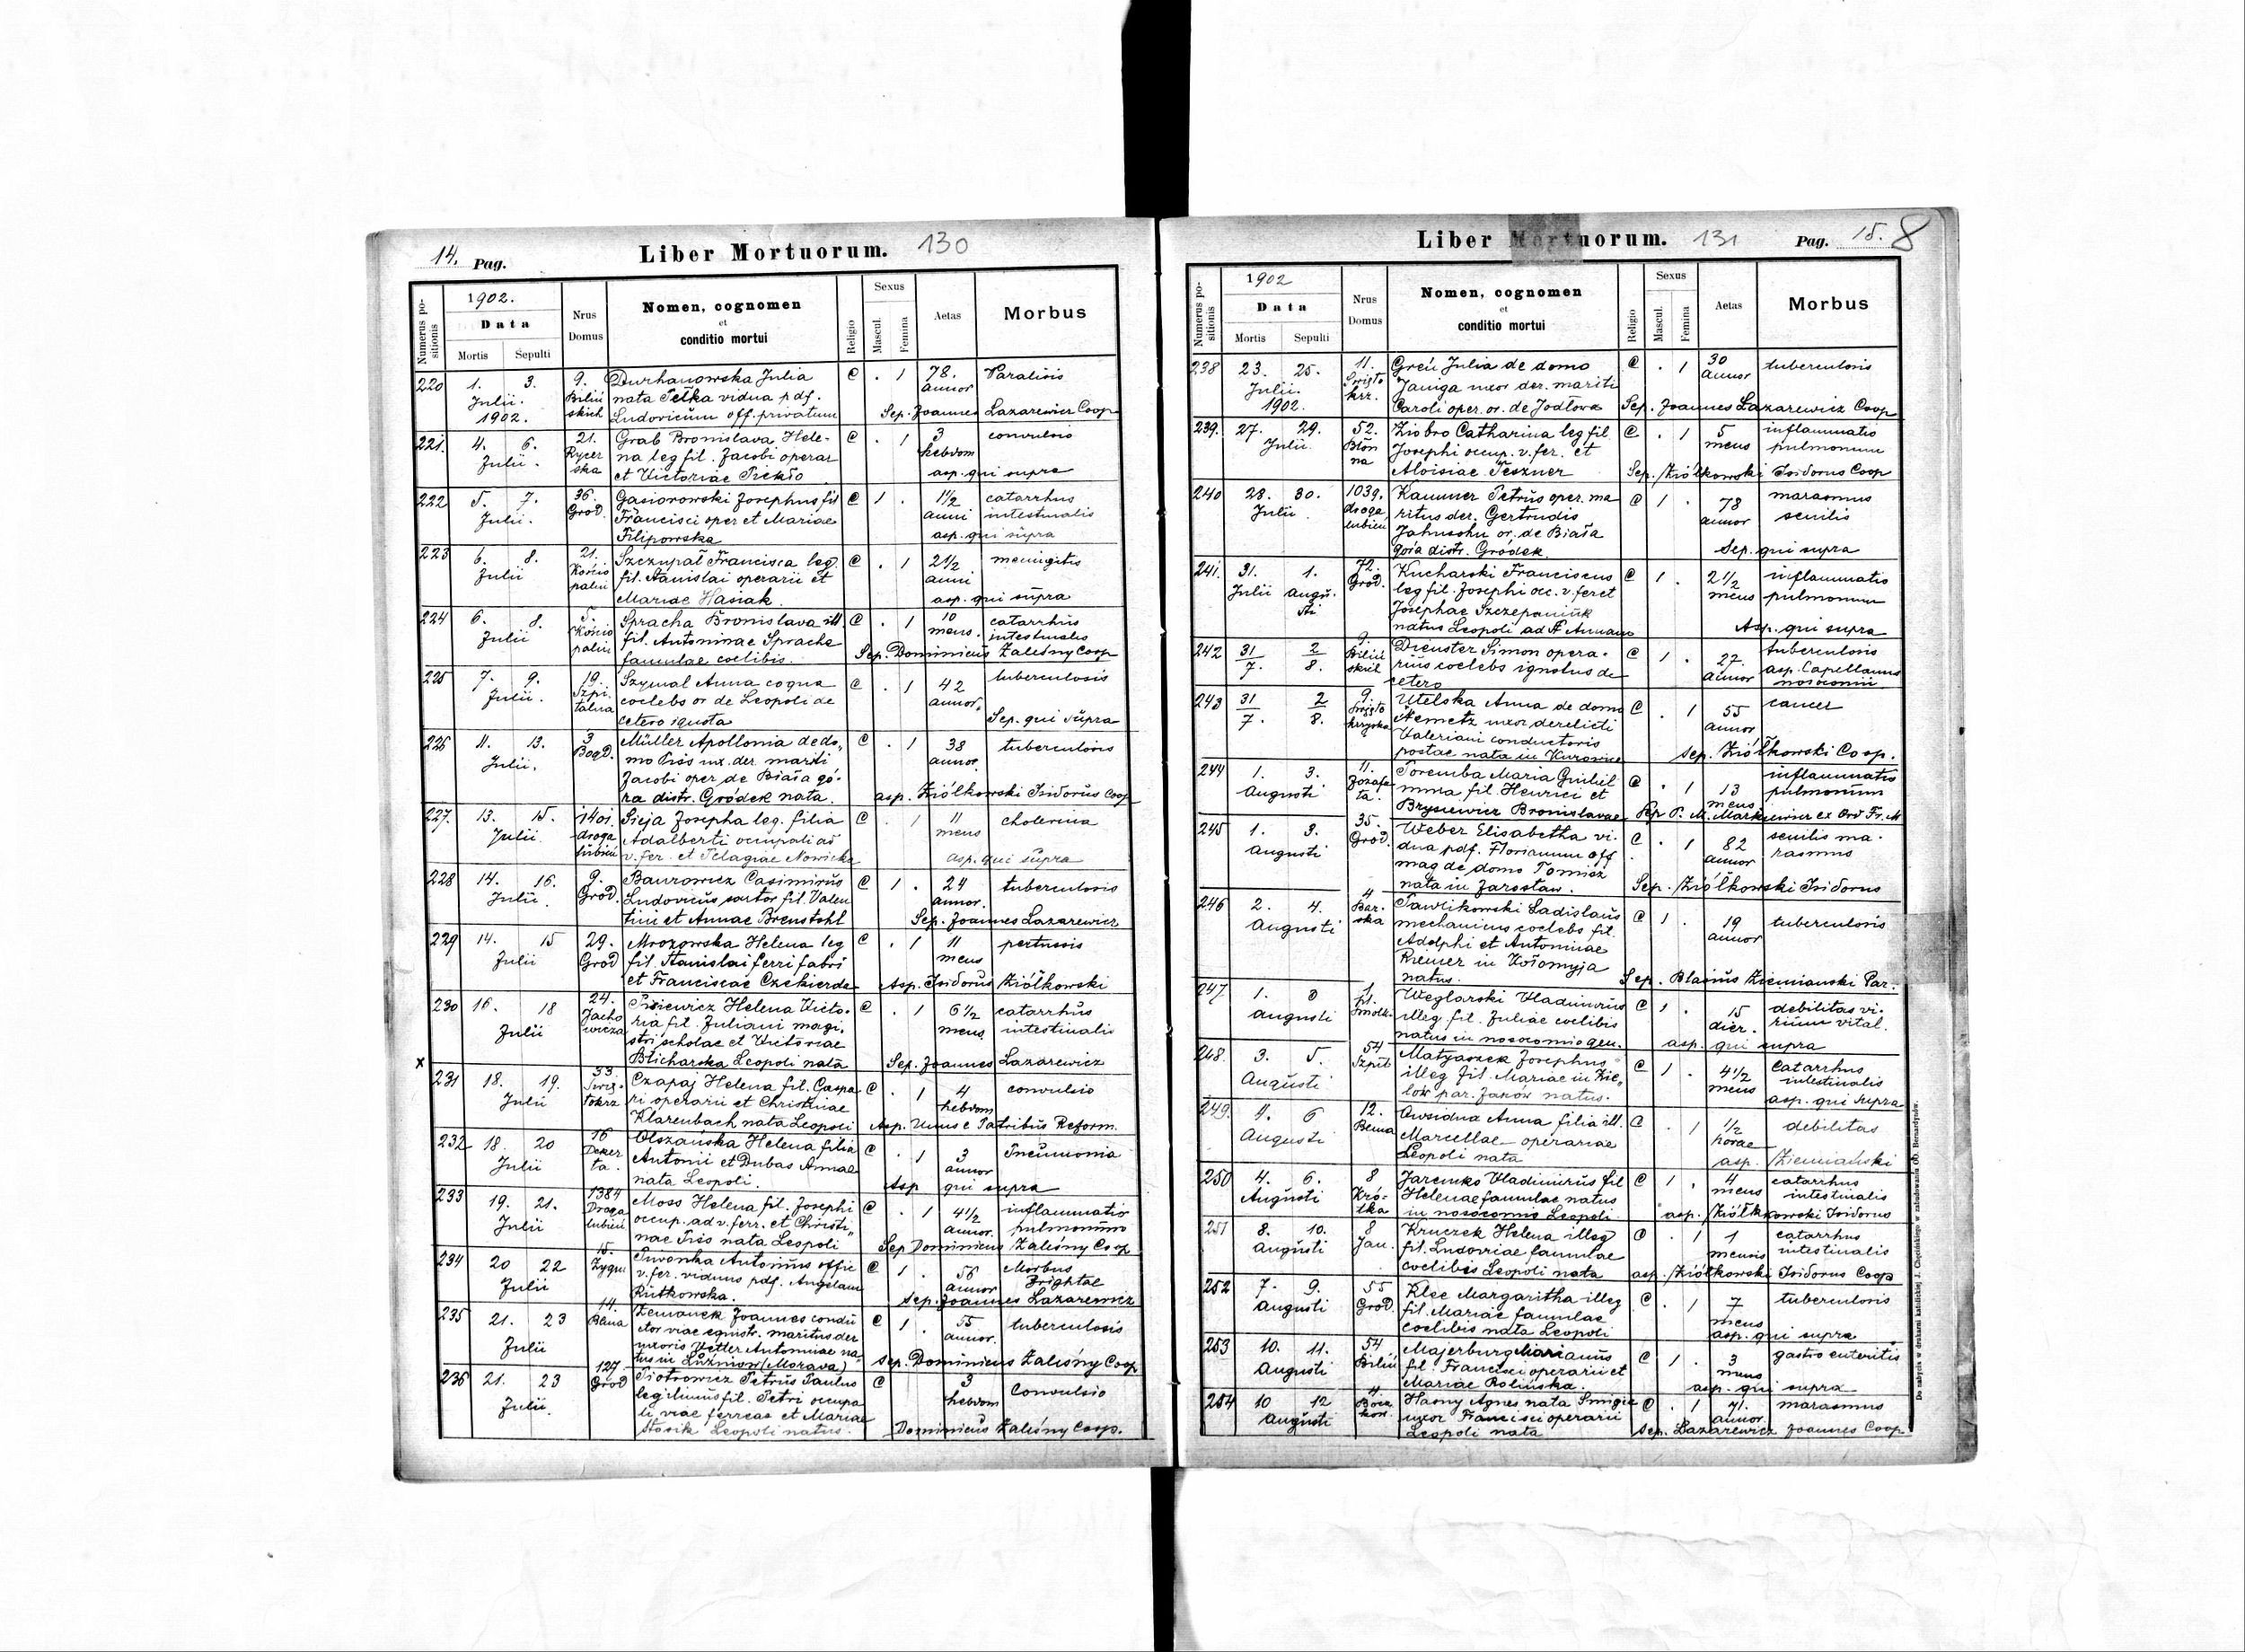 14. Pag. Liber Mortuorum. 130
Numerus positionis
1902.
Data
Mortis Sepulti
Nrus Domus
Nomen, cognomen
et
conditio mortui
Religio
Sexus
Mascul. Femina
Aetas
Morbus
220 1. 3. 9. Durhanowska Julia C . 1 78. Paralisis
Julii. Biliń nata Petka vidua pdf. annor
1902. skich Ludovicum off. privatum Sep. Joannes Lazarewicz Coop
221. 4. 6. 21. Grab Bronislava Hele- C . 1 3 convulsio
Julii. Rycer na leg fil. Jacobi operar hebdom
ska et Victoriae Piekło asp. qui supra
222 5. 7. 36. Gasiorowski Josephus fil C 1 . 1 1/2 catarrhus
Julii. Grod. Francisci oper et Mariae anni intestinalis
Filipowska asp. qui supra
223 6. 8. 21. Szczupał Francisca leg. C . 1 2 1/2 meningitis
Julii Kościo fil. Stanislai operarii et anni
palni Mariae Hasiak. asp. qui supra
224 6. 8. 5. Spracha Bronislava ill C . 1 10 catarrhus
Julii Kościo fil. Antoninae Spracha mens. intestinalis
palni famulae coelibis. Sep. Dominicus Zaleśny Coop
225 7. 9. 19. Szymal Anna coqua C . 1 42 tuberculosis
Julii. Szpi- coelebs or de Leopoli de annor.
talna cetero ignota Sep. qui supra
226 11. 13. 3 Müller Apollonia de do- C . 1 38 tuberculosis
Julii. Bogd. mo Piós ux. der mariti annor.
Jacobi oper de Biała gó-
ra distr. Gródek nata. asp. Ziółkowski Isidorus Coop
227. 13. 15. 1401. Sieja Josepha leg. filia C . 1 11 cholerina
Julii droga Adalberti occupati ad mens
lubień v. fer. et Pelagiae Nowicka asp. qui supra
228 14. 16. 9. Baurowicz Casimirus C 1 . 24 tuberculosis
Julii. Grod. Ludovicus sartor fil. Valen annor.
tini et Annae Brenstohl Sep. Joannes Lazarewicz
229 14. 15 29. Mrozowska Helena leg C . 1 11 pertussis
Julii Grod fil. Stanislai ferri fabri mens
et Franciscae Czekierda Asp. Isidorus Ziółkowski
230 16. 18 24. Pisiewicz Helena Victo- C . 1 6 1/2 catarrhus
Julii Zacho ria fil. Juliani magi- mens intestinalis
wicza stri scholae et Victoriae
Blicharska Leopoli nata Sep. Joannes Lazarewicz
x
231 18. 19. 33. Czapaj Helena fil. Caspa- C . 1 4 convulsio
Julii Swię- ri operarii et Christinae hebdom
tokrz Klarenbach nata Leopoli Asp. Unus e Patribus Reform.
232 18. 20 16 Olszańska Helena filia C . 1 3 Pneumonia
Julii Deker Antonii et Dubas Annae annor
ta. nata Leopoli. Asp qui supra
233 19. 21. 1384 Moss Helena fil. Josephi C . 1 4 1/2 inflammatio
Julii Droga occup. ad v. ferr. et Christi- annor. pulmonum
lubień nae Piós nata Leopoli Sep Dominicus Zaleśny Coop
234 20 22 15. Piwonka Antonius offic C 1 . 56 Morbus
Julii Zygm v. fer. viduus pdf. Angelam annor Brightae
Rutkowska. Sep. Joannes Lazarewicz
235 21. 23 14. Zemanek Joannes condu C 1 . 55 tuberculosis
Julii Bema ctor viae equistr. maritus der annor.
uxoris Vetter Antoninae na-
tus in (Morava) Sep. Dominicus Zaleśny Coop
236 21. 23 127 Piotrowicz Petrus Paulus C 3 Convulsio
Julii. Grod legitimus fil. Petri occupa hebdom
ti viae ferreae et Mariae
Stosik Leopoli natus. Dominicus Zaleśny Coop.
Liber Mortuorum. 131 Pag. 15. 8
Numerus positionis
1902
Data
Mortis Sepulti
Nrus Domus
Nomen, cognomen
et
conditio mortui
Religio
Sexus
Mascul. Femina
Aetas
Morbus
238 23. 25. 11. Greń Julia de domo C . 1 30 tuberculosis
Julii. Święto Janiga uxor der. mariti annor
1902. krz. Caroli oper. or. de Jodłowa Sep. Joannes Lazarewicz Coop
239. 27. 29. 52. Ziobro Catharina leg fil C . 1 5 inflammatio
Julii. Błon Josephi occup. v. fer. et mens pulmonum
na Aloisiae Teszner Sep. Ziółkowski Isidorus Coop
240 28. 30. 1039. Kammer Petrus oper. ma C 1 . 78 marasmus
Julii droga ritus der. Gertrudis annor senilis
lubień Jahnsohn or. de Biała
góra distr. Gródek Sep. qui supra
241. 31. 1. 72. Kucharski Franciscus C 1 . 2 1/2 inflammatio
Julii Augu- Grod. leg fil. Josephi occ. v. fer et mens pulmonum
sti Josephae Szczepaniuk
natus Leopoli ad St Annam Asp. qui supra
242 31/7. 2/8. 9. Dienster Simon opera- C 1 . 27. tuberculosis
Biliń rius coelebs ignotus de annor asp. Capellanus
skich cetero nosocomii
243 31/7. 2/8. 9. Utelska Anna de domo C . 1 55 cancer
Święto Nemetz uxor derelicti annor
krzyska Valeriani conductoris
postae nata in Kurowice Sep. Ziółkowski Coop.
244 1. 3. 11. Poremba Maria Guiliel C . 1 13 inflammatio
Augusti Jozafa mma fil. Henrici et mens pulmonum
ta. Brysiewicz Bronislavae Sep P. M. Markiewicz ex Ord Fr. M
245 1. 3. 35. Weber Elisabetha vi- C . 1 82 senilis ma-
Augusti Grod. dua pdf. Florianum off annor rasmus
mag de domo Tomisz
nata in Jarosław. Sep. Ziółkowski Isidorus
246 2. 4. 4 Pawlikowski Ladislaus C 1 . 19 tuberculosis
Augusti Bar- mechanicus coelebs fil. annor
ska Adolphi et Antoninae
Riemer in Kołomyja
natus. Sep. Blasius Ziemianski Par.
247. 1. 1 Węglarski Vladimirus C 1 . 15 debilitas vi-
Augusti pl. illeg. fil. Juliae coelibis dier. rium vital.
Smolk. natus in nosocomio gen. asp. qui supra
248. 3. 5. 54 Matyaszek Josephus C 1 . 4 1/2 Catarrhus
Augusti Szpit illeg fil. Mariae in Zie- mens intestinalis
łów par. Janów natus. asp. qui supra
249. 4. 6 12. Owsidna Anna filia ill. C . 1 1/2 debilitas
Augusti Bema Marcellae operariae horae
Leopoli nata asp. Ziemiański
250 4. 6. 8 Jaremko Vladimirus fil C 1 . 4 catarrhus
Augusti Kró- Helenae famulae natus mens intestinalis
tka in nosocomio Leopoli asp. Ziółkowski Isidorus
251 8. 10. 8 Kruczek Helena illeg C . 1 1 catarrhus
Augusti Jan. fil. Ludoviae famulae mensis intestinalis
coelibis Leopoli nata asp. Ziółkowski Isidorus Coop
252 7. 9. 55 Klee Margaritha illeg C . 1 7 tuberculosis
Augusti Grod. fil. Mariae famulae mens
coelibis nata Leopoli asp. qui supra
253 10. 11. 54 Majerburg Marianus C 1 . 3 gastro enteritis
Augusti Biliń fil. Francisci operarii et mens
Mariae Rolińska. asp. qui supra
254 10 12 4 Hasny Agnes nata Smigie C . 1 71. marasmus
Augusti uxor Francisci operarii annor.
Leopoli nata Sep. Lazarewicz Joannes Coop
Do nabycia w drukarni katolickiej J. Chęcińskiego w zabudowaniu OO. Bernardynów.